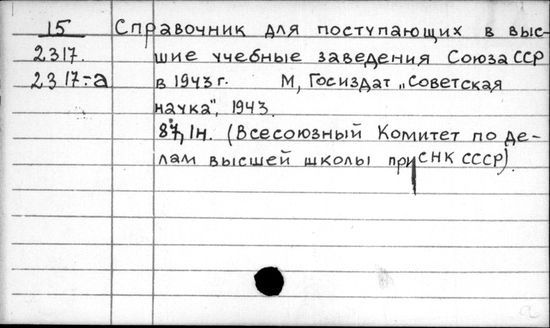 15 Справочник для поступающих в выс-
2317. шие учебные заведения Союза ССР
2317-а в 1943 г. М, Госиздат „Советская
наука", 1943.
87, Iн. (Всесоюзный Комитет по де-
лам высшей школы при СНК СССР).